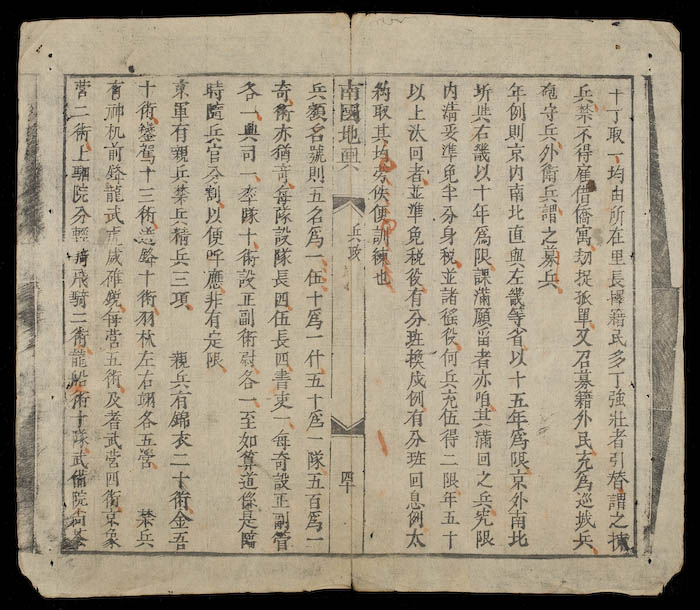 十丁取一均由所在里長擇籍民多丁強壯者引替謂之揀
兵禁不得雇借僑寓劫捉孤單又召募籍外民充為巡城兵
砲守兵外衛兵謂之募兵
年例則京內南北直與左畿等省以十五年為限京外南北
圻與右畿以十年為限課滿願留者亦咱其滿回之兵究限
內清妥準免半分身稅並諸徭役何兵充伍得二限年五十
以上汰回者並準免稅役有分班換戍例有分班回息例太
約取其均勞佚便訓練也
南國地輿
兵政
四十
兵額名號則五名為一伍十為一什五十為一隊五百為一
奇衛亦猶奇每隊設隊長四伍長四書吏一每奇設正副管
各一典司一率隊十衛設正副衛尉各一至如算道條是臨
時隨兵官分割以便呼應非有定限
京軍有親兵禁兵精兵三項 親兵有錦衣二十衛金吾
十衛鑾駕十三衛道路十衛羽林左右翊各五營 禁兵
有神机前鋒龍武虎威雄銳每營五衛及者武營四衛京象
營二衛上駟院分輕騎飛騎二衛龍船衛十隊武備院